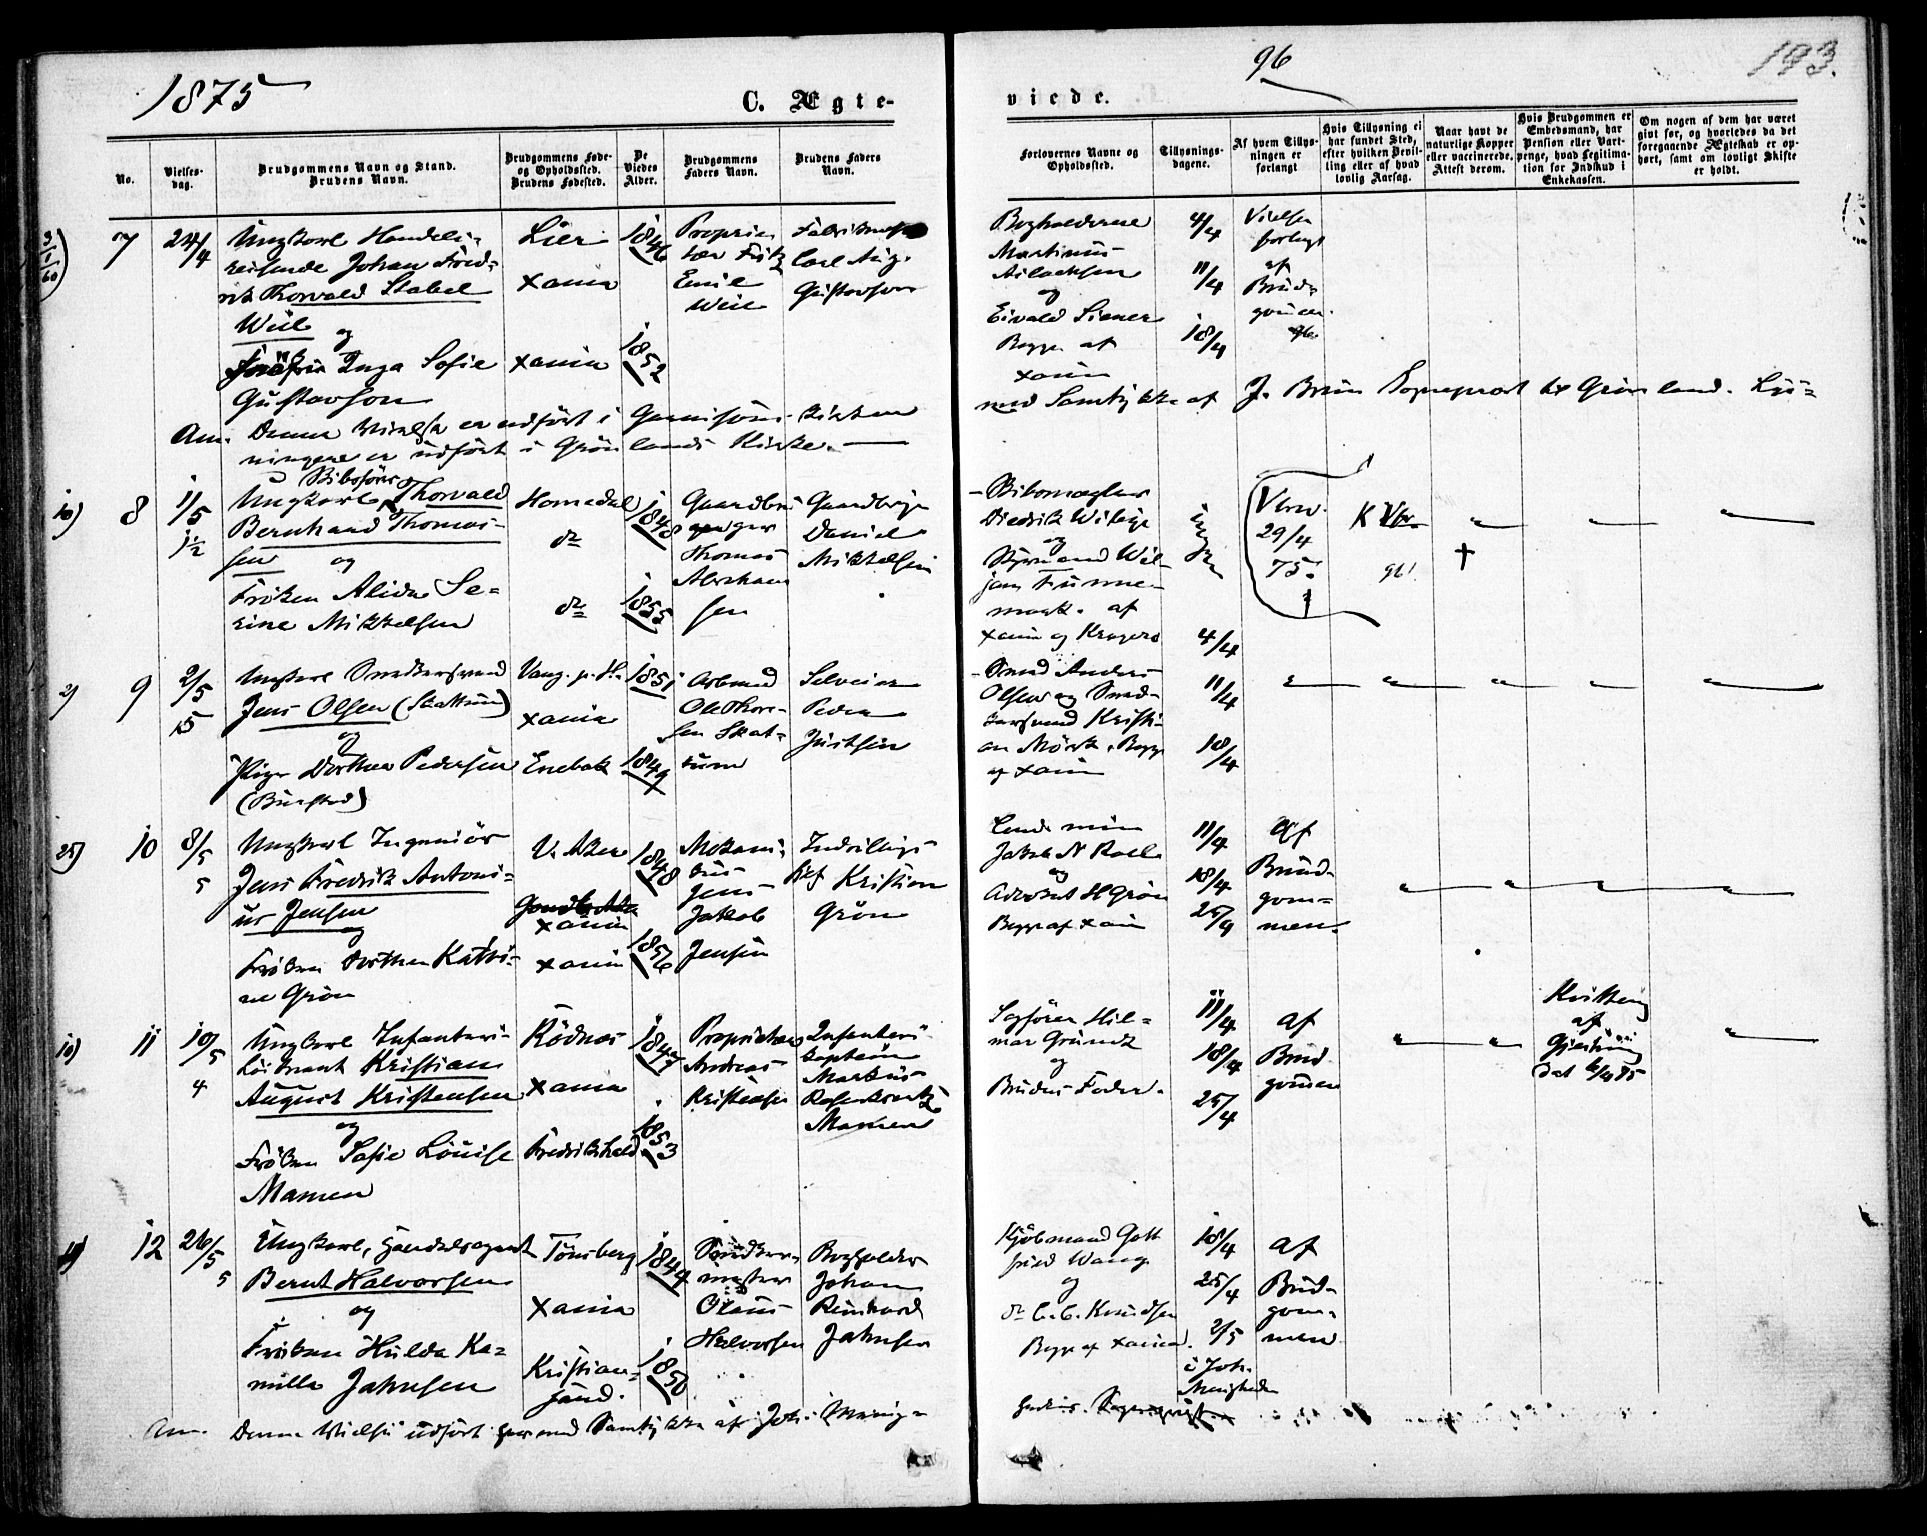 1875
C. Ægte-
viede.
96
193.
No.
Vielses-
dag.
Brudgommens Navn og Stand.
Brudens Navn.
Brudgommens Føde-
og Opholdssted.
Brudens Fødested.
De
Viedes
Alder.
Brudgommens
Faders Navn.
Brudens Faders
Navn.
Forlovernes Navne og
Opholdssted.
Tillysnings-
dagene.
Af hvem Tillys-
ningen er
forlangt
Hvis Tillysning ei
har fundet Sted,
efter hvilken Bevil-
ling eller af hvad
lovlig Aarsag.
Naar havt de
naturlige Kopper
eller vaccinerede.
Attest derom.
Hvis Brudgommen er
Embedsmand, har
Pension eller Vart-
penge, hvad Legitima-
tion for Indskud i
Enkekassen.
Om nogen af dem har været
givt før, og hvorledes da det
foregaaende Ægteskab er op-
hørt, samt om lovligt Skifte
er holdt.
7
24/4
Ungkarl Handels-
reisende Johan Fred-
rik Thorvald Stabel
Wiel
og
Frøken Inga Sofie
Gustavson
Lier
Xania
Xania
1846
1852
Proprie-
tær Fritz
Emil
Wiel
Carl Aug.
Gustavson
Bogholderne
Martinus
Aslacksen
og
Eivald Siener
Begge af
Xania
4/4
11/4
18/4
Vielsen
forlangt
af
Brud-
gommen.
Anm. Denne Vielse er udført i Garnisons-kirken
med Samtykke af J. Brun Sogneprest til Grønland. Lys-
ningene er udført i Grønlands Kirke.
10)
8
1/5
1½
Ungkarl Thorvald
Bernhard Thomas-
sen
og
Frøken Alida Se-
rine Mikkelsen
Homedal
do
do
1848
1855
Gaardbru-
ger
Thomas
Abraham
sen
Gaardbruger
Daniel
Mikkelsen
Skibsmægler
Diedrik Wiborg
og
Styrmand Wil-
jam Tunne-
mark. af
Xania og Kragerø
ingen
29/4
75.
2)
9
2/5
15
Ungkarl Snedkersvend
Jens Olsen (Skattum)
og
Pige Dorthea Pedersen
(Burstad)
Vang. p. H.
Xania
Enebak
1851
1849
Arbmand
Ole Thore-
sen Skat-
tum
Selveier
Peder
Justsen
Smed Anders
Olsen og Sned-
kersvend Kristi-
an Mørk. Begge
af Xania
4/4
11/4
18/4
25)
10
8/5
5
Ungkarl Ingeniør
Jens Fredrik Antoni-
us Jensen
og
Frøken Dorthea Kathi-
ne Grøn
V. Aker
Xania
Xania
1848
1856
Mekani-
kus
Jens
Jakob
Jensen
Kristian
Grøn
Jakob N Roll
og
Advokat H Grøn
Begge af Xania
11/4
18/4
25/4
Af
Brud-
gom-
men.
10)
11
10/5
4
Ungkarl Infanteri-
Løitnant Kristian
August Kristensen
og
Frøken Sofie Louise
Mamen
Rødnæs
Xania
Fredrikshald
1847
1853
Proprietær
Andreas
Kristensen
Infanteri-
kaptein
Markus
Rosenkrantz
Mamen
Sagfører Hil-
mar Grundt
og
Brudens Fader.
11/4
18/4
25/4
af
Brud-
gommen
Kvittering
af
12
26/5
5
Ungkarl, Handelsagent
Bernt Halvorsen
og
Frøken Hulda Ka-
milla Jahnsen
Tønsberg
Xania
Kristian-
sand.
1844
1850
Snedker-
mester
Olaus
Halvorsen
Bogholder
Johan
Reinhard
Jahnsen
Kjøbmand Gott
fried Wang
og
do C. C. Knudsen
Begge af Xania.
18/4
25/4
2/5
i Joh.
Menigheden
af
Brud-
gom-
men
Anm. Denne Vielse udført her med Samtykke af Joh. Menig-
hedens Sogneprest.